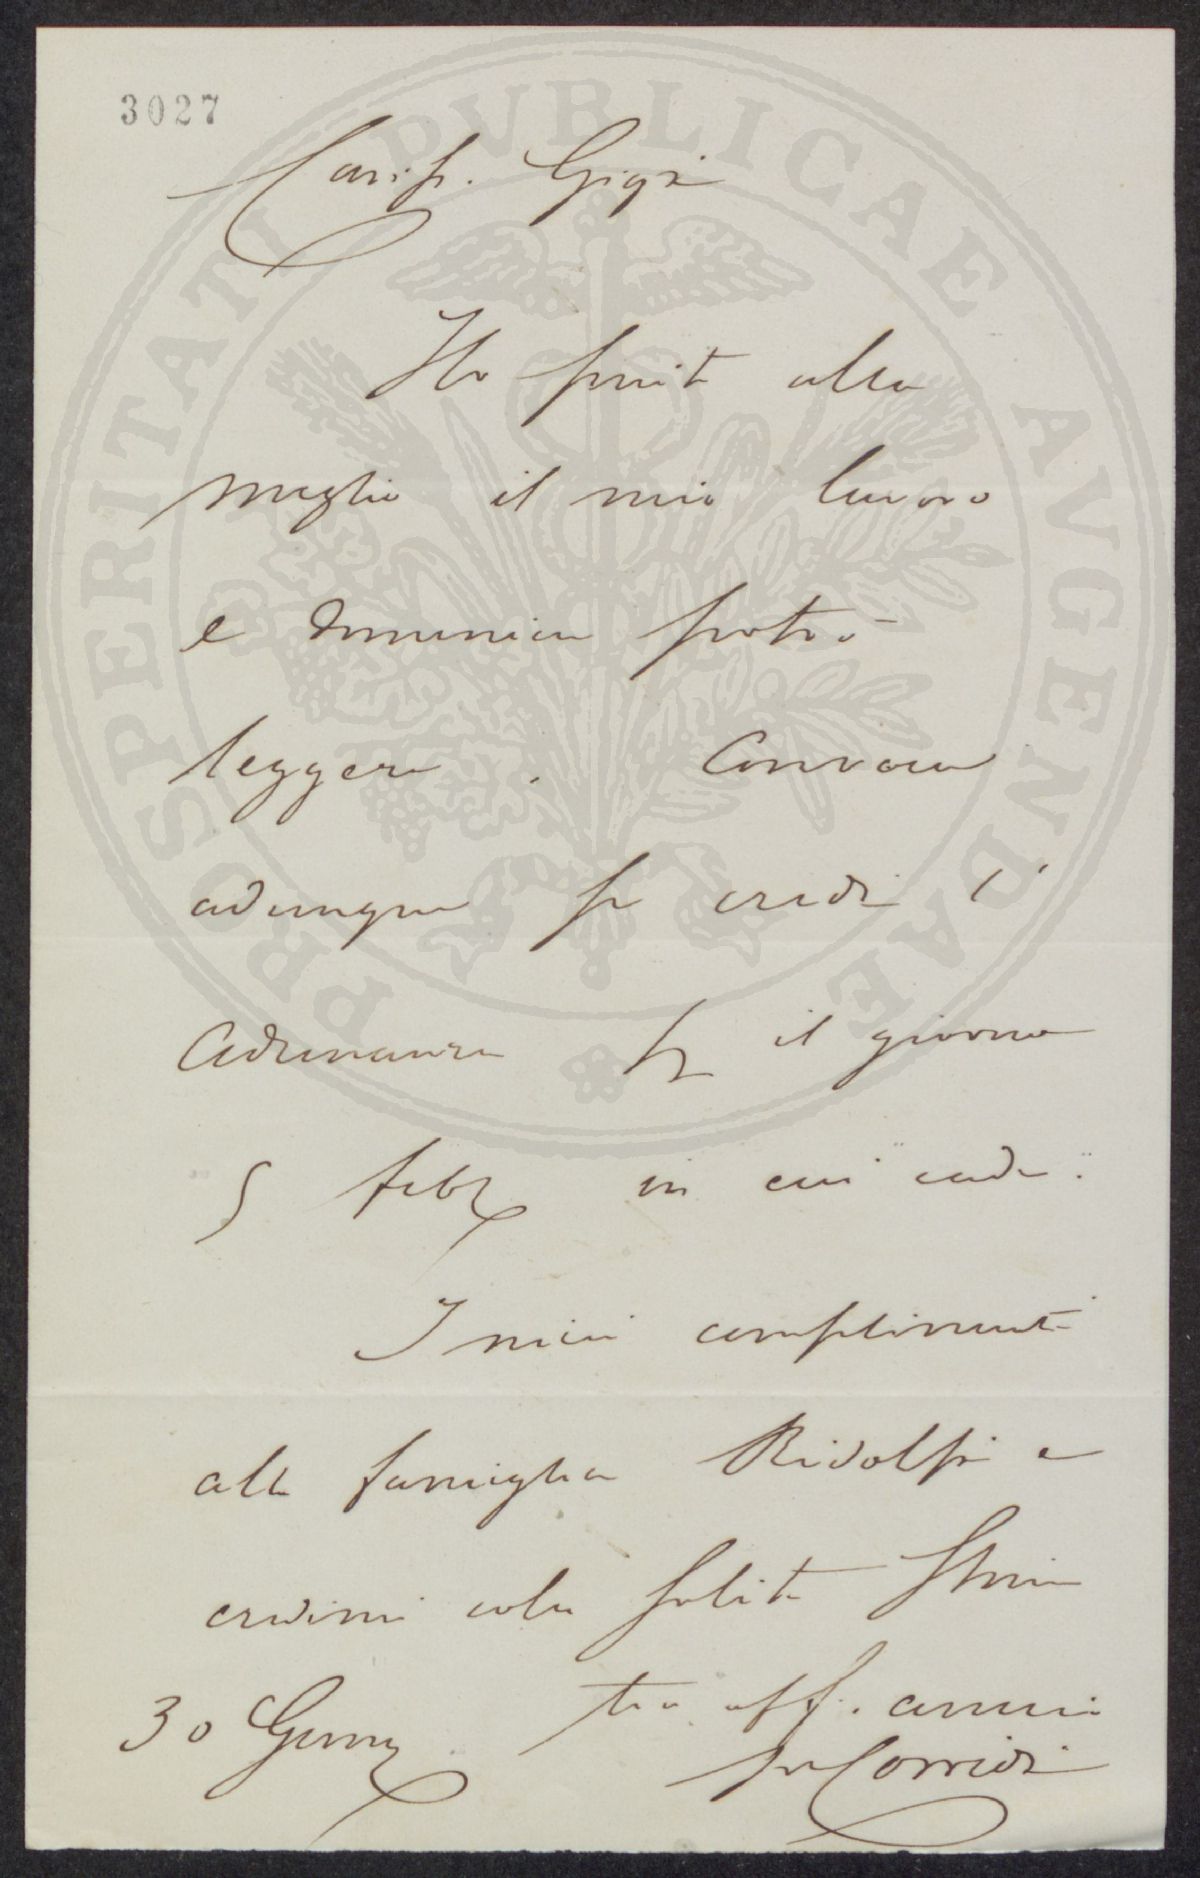 3027
PROSPERITATI PVBLICAE AVGENDAE
Cariss. Gigi
Ho finito alla
meglio il mio lavoro
e domenica potrò
leggere. Convoca
adunque se credi l'
Adunanza per il giorno
5 febb in cui cade.
I miei complimenti
alla famiglia Ridolfi e
credimi colla solita stima
30 Genn tuo aff. amico
Corridi